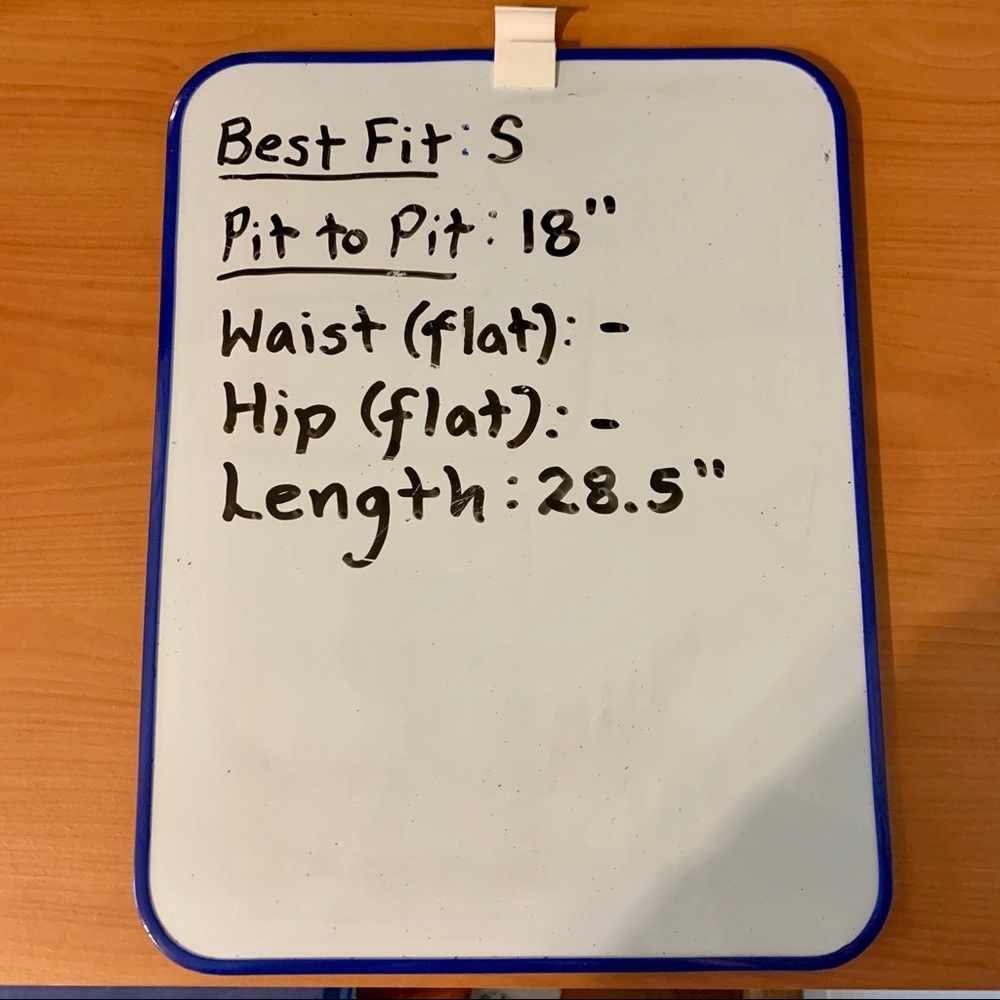 Best Fit: S
Pit to Pit: 18"
Waist (flat): -
Hip (flat): -
Length: 28.5"